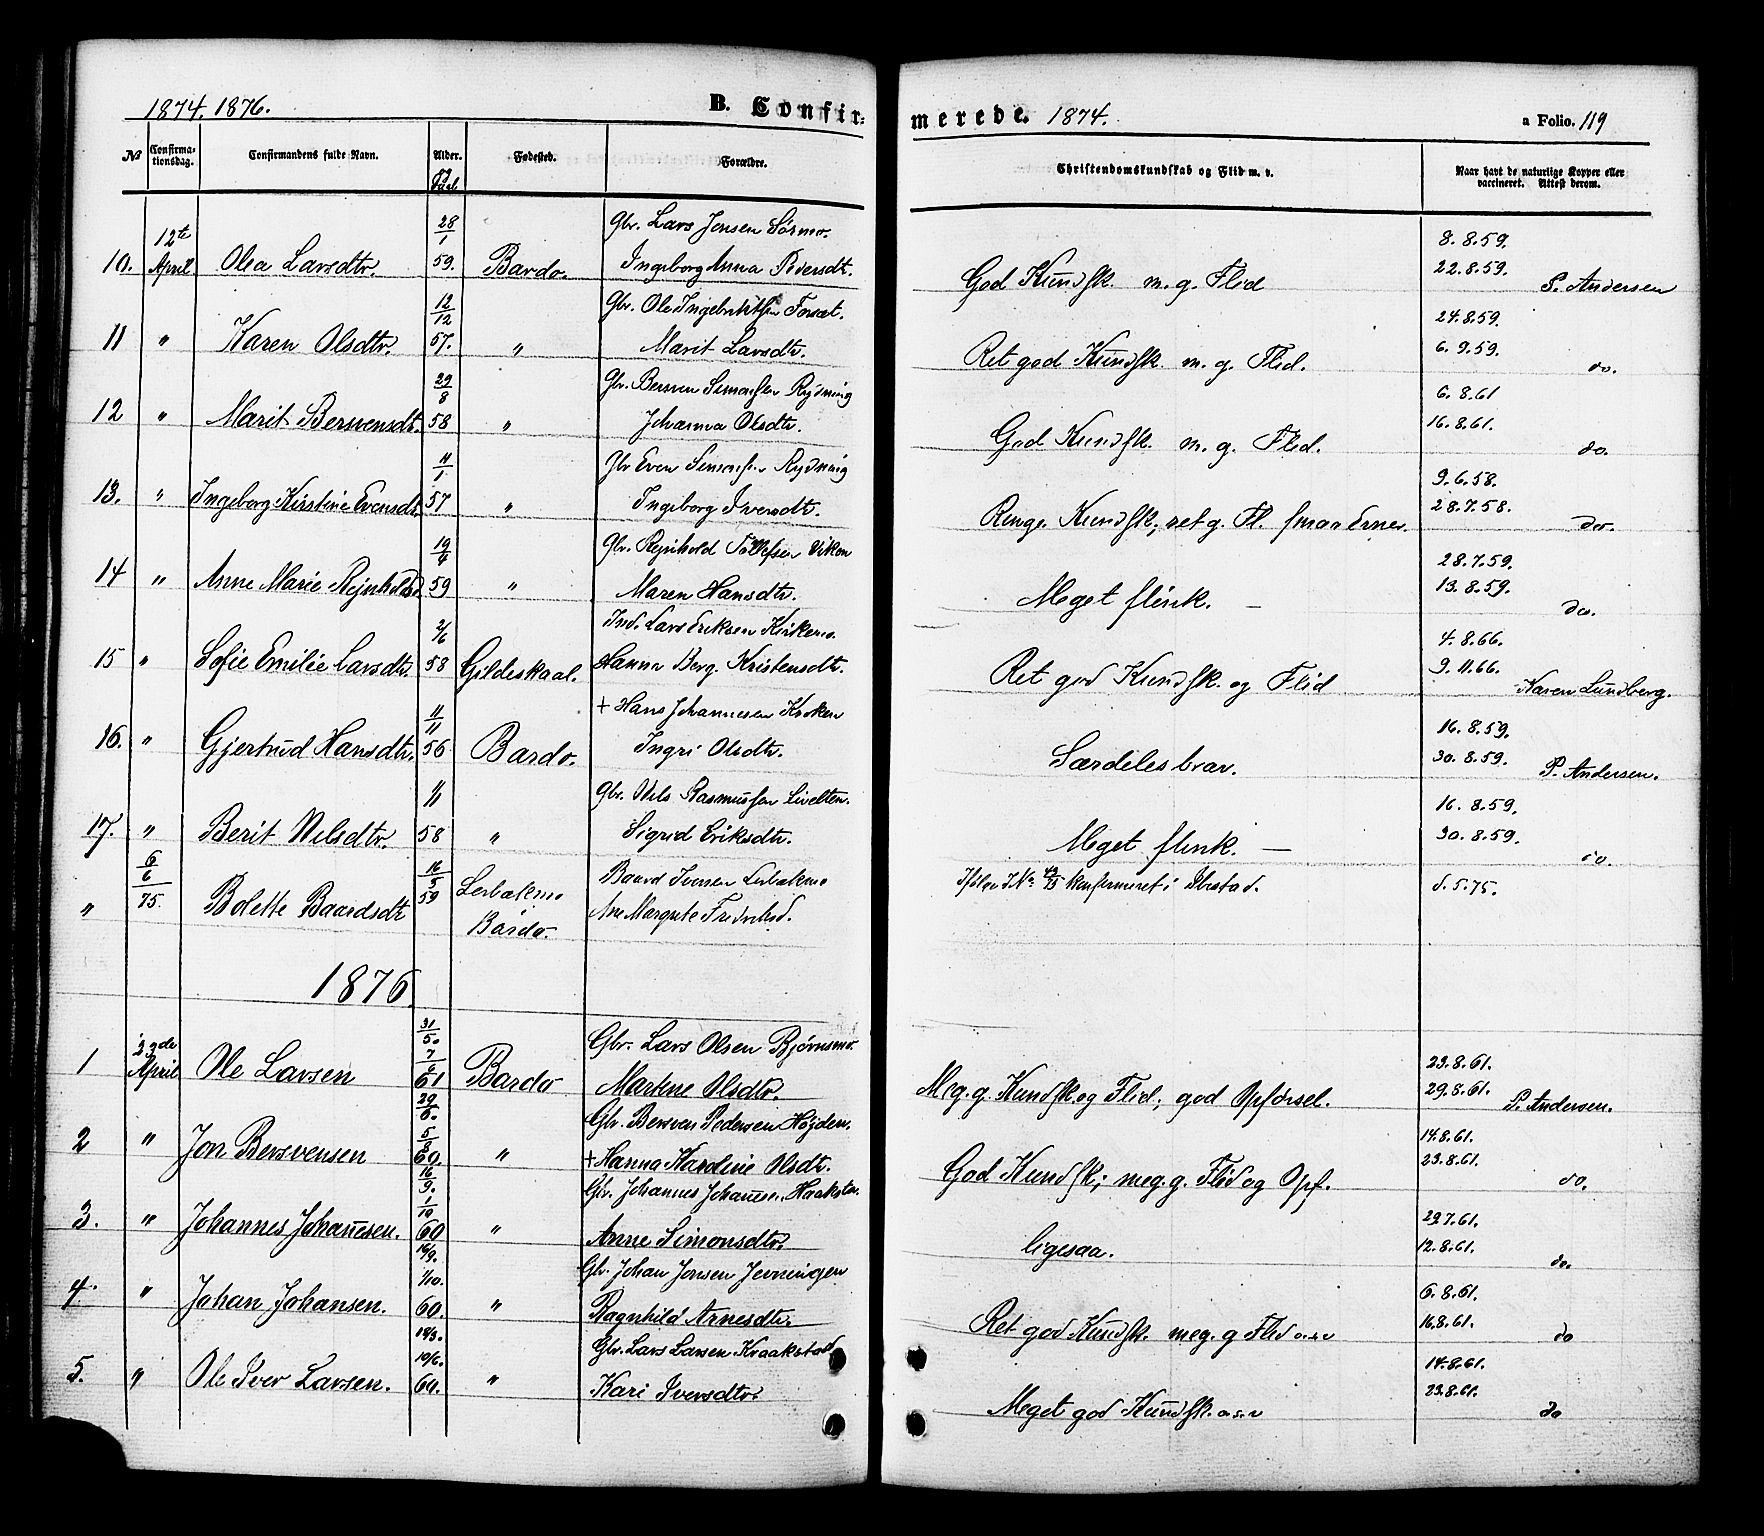 1874. 1876. B. Confir-
merede. 1874. a Folio. 119
№ Confirma-tionsdag. Confirmandens fulde Navn. Alder. Fødested. Forældre. Christendomskundskab og Flid m. v. Naar havt de naturlige Kopper eller vaccineret. Attest derom.
28/1 Gbr. Lars Jensen Sørmo. 8.8.59.
12te
10. April Olea Larsdtr. 59. Bardo. Ingeborg Anna Pedersdt. God Kundsk. m. g. Flid 22.8.59. P. Andersen
12/12 Gbr. Ole Ingebrigtsen Forset. 24.8.59.
11 " Karen Olsdtr. 57. " Marit Larsdtr. Ret god Kundsk. m. g. Flid. 6.9.59. do.
29/8 Gbr. Bersven Simonsen Rydning 6.8.61
12 " Marit Bersvensdt. 58 " Johanna Olsdtr. God Kundsk. m. g. Flid. 16.8.61. do.
11/1 Gbr Even Simonsen Rydning 9.6.58.
13. " Ingeborg Kirstine Evensdt. 57 " Ingeborg Iversdtr. Ringe Kundsk; ret g. Fl. 28.7.58. do.
19/4 Gbr. Rejnhold Tollefsen Viken 28.7.59.
14 " Anne Marie Rejnholds 59 " Maren Hansdtr. Meget flink. — 13.8.59. do.
2/6 Ind. Lars Eriksen Kirkemo. 4.8.66.
15 " Sofie Emilie Larsdtr. 58 Gildeskaal. Hanna Berg. Kristensdt. Ret god Kundsk. og Flid 9.11.66. Karen Lundberg.
11/11 + Hans Johannesen Kroken 16.8.59.
16. " Gjertrud Hansdtr. 56 Bardo. Ingri Olsdtr. Særdeles brav. 30.8.59. P. Andersen.
Gbr. Nils Rasmussen Livelten. 16.8.59.
17. " Berit Nilsdtr. 58 " Sigrid Eriksdtr. Meget flink. — 30.8.59. do.
6/6 75. 16/5 Baard Iversen Leibakmo konfirmeret i Ibestad. 5.75.
" Bolette Baardsdtr 59 Leibakmo Bardo. Ane Margrete Fredriksd.
1876
31/5. Gbr. Lars Olsen Bjørnsmo. 23.8.61.
23de
1 April Ole Larsen 7/6 61 Bardo Martine Olsdtr. Meg. g. Kundsk. og Flid; god Opførsel. 29.8.61. P. Andersen.
29/6. Gbr. Bersvan Pedersen Højden. 14.8.61.
2 " Jon Bersvensen 5/8 60. " + Hanna Karoline Olsdtr. God Kundsk; meg. g. Flid og Opf. 23.8.61. do.
16/9. Gbr. Johannes Johanesen Haakstad. 29.7.61.
3. " Johannes Johanesen. 1/10 60 " Anne Simonsdtr. ligesaa. 12.8.61. do.
16/9. Gbr. Johan Jonsen Jevningen 6.8.61.
4. " Johan Johansen. 1/10. 60. " Ragnhild Arnesdtr. Ret god Kundsk. meg. g Flid o.s.v 16.8.61. do
18/3. Gbr. Lars Larsen Kraakstad 14.8.61.
5. " Ole Iver Larsen. 10/6. 60. " Kari Iversdtr. Meget god Kundsk. o.s.v 23.8.61. do